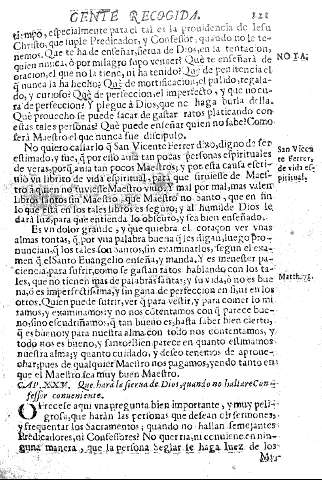 GENTE RECOGIDA. 121
tiempo, especialmente para el tal es la prouidencia de Iesu
Christo, que suple Predicador, y Confessor, quando no le te-
nemos. Que te ha de enseñar, sierua de Dios, en la tentacion,
quien nunca, ò por milagro supo vencer? Què te enseñarà de
oracion, el que no la tiene, ni ha tenido? Què de penitencia el
q̃ nunca la ha hecho? Què de mortificacion, el pulido, regala-
do, y curioso? Què de perfeccion, el imperfecto, y que no cu-
ra de perfeccion? Y plegue à Dios, que no haga burla della.
Què prouecho se puede sacar de gastar ratos platicando con
estas tales personas? Què puede enseñar quien no sabe? Como
serà Maestro el que nunca fue discipulo.
NOTA.
No quiero callar lo q̃ San Vicente Ferrer dixo, digno de ser
estimado, y fue, q̃ por esso auia tan pocas personas espirituales
de veras, porq̃ auia tan pocos Maestros; y por esta causa escri-
uiò vn librito de vida espiritual, para que siruiesse de Maes-
tro à quien no tuuiesse Maestro viuo. Y mal por mal, mas valen
libros santos sin Maestro, que Maestro no santo, que en fin
lo que està en los tales libros es seguro, y al humilde Dios le
darà luz, para que entienda lo obscuro, y sea bien enseñado.
San Vicen
te Ferrer,
de vida es-
piritual.
Es vn dolor grande, y que quiebra el coraçon ver vnas
almas tontas, q̃ por vna palabra buena q̃ les digan, luego Pro-
nuncian, q̃ los tales son santos, sin examinarlos, segun el exa-
men q̃ el Santo Euangelio enseña, y manda. Y es menester pa-
ciencia, para sufrir, como se gastan ratos hablando con los ta-
les, que no tienen mas de palabras santas; y su vida, ò no es bue
na, ò es imperfectissima, y sin gana de perfeccion en si, ni en los
otros. Quien puede sufrir, ver q̃ para vestir, y para comer lo mi-
ramos, y examinamos; y no nos contentamos con q̃ parece bue-
no, sino escudriñamos, q̃ tan bueno es; hasta saber bien cierto,
q̃ es bueno; y para nuestra alma con todo nos contentamos, y
todo nos es bueno, y santo? Bien parece en quanto estimamos
nuestra alma; y quanto cuidado, y deseo tenemos de aproue-
char, pues de qualquier Maestro nos pagamos, yendo tanto en
que el Maestro sea muy buen Maestro.
Matth. 7.
CAP. XXV. Que harà la sierua de Dios, quando no hallare Con-
fessor conueniente.
Ofrecese aqui vna pregunta bien importante, y muy peli-
grosa, que haràn las personas que desean oir sermones,
y frequentar los Sacramentos; quando no hallan semejantes
Predicadores, ni Confessores? No querria, ni conuiene en nin-
guna manera, que la persona seglar se haga luez de los